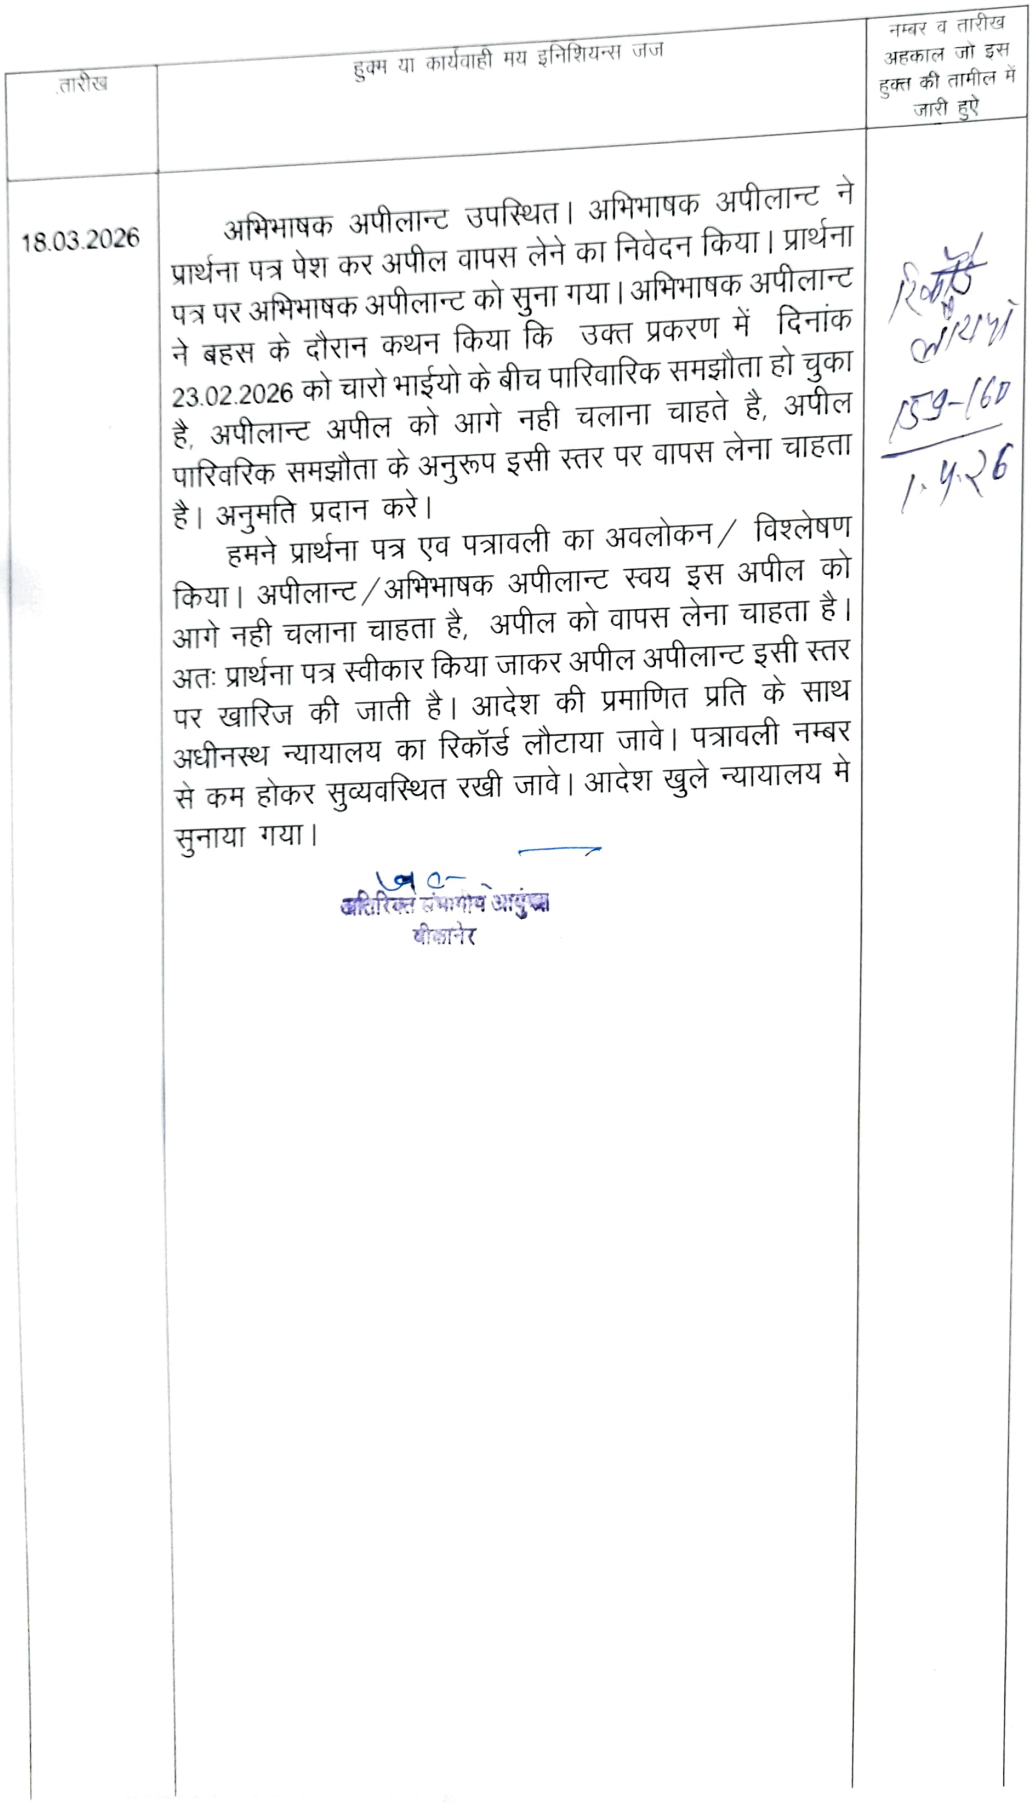 तारीख
हुक्म या कार्यवाही मय इनिशियन्स जज
नम्बर व तारीख
अहकाल जो इस
हुक्त की तामील में
जारी हुऐ
18.03.2026
अभिभाषक अपीलान्ट उपस्थित। अभिभाषक अपीलान्ट ने
प्रार्थना पत्र पेश कर अपील वापस लेने का निवेदन किया। प्रार्थना
पत्र पर अभिभाषक अपीलान्ट को सुना गया। अभिभाषक अपीलान्ट
ने बहस के दौरान कथन किया कि उक्त प्रकरण में दिनांक
23.02.2026 को चारो भाईयो के बीच पारिवारिक समझौता हो चुका
है, अपीलान्ट अपील को आगे नही चलाना चाहते है, अपील
पारिवरिक समझौता के अनुरूप इसी स्तर पर वापस लेना चाहता
है। अनुमति प्रदान करे।
हमने प्रार्थना पत्र एव पत्रावली का अवलोकन/ विश्लेषण
किया। अपीलान्ट/अभिभाषक अपीलान्ट स्वय इस अपील को
आगे नही चलाना चाहता है, अपील को वापस लेना चाहता है।
अतः प्रार्थना पत्र स्वीकार किया जाकर अपील अपीलान्ट इसी स्तर
पर खारिज की जाती है। आदेश की प्रमाणित प्रति के साथ
अधीनस्थ न्यायालय का रिकॉर्ड लौटाया जावे। पत्रावली नम्बर
से कम होकर सुव्यवस्थित रखी जावे। आदेश खुले न्यायालय मे
सुनाया गया।
अतिरिक्त संभागीय आयुक्त
बीकानेर
रिकॉर्ड
159-160
1.4.26